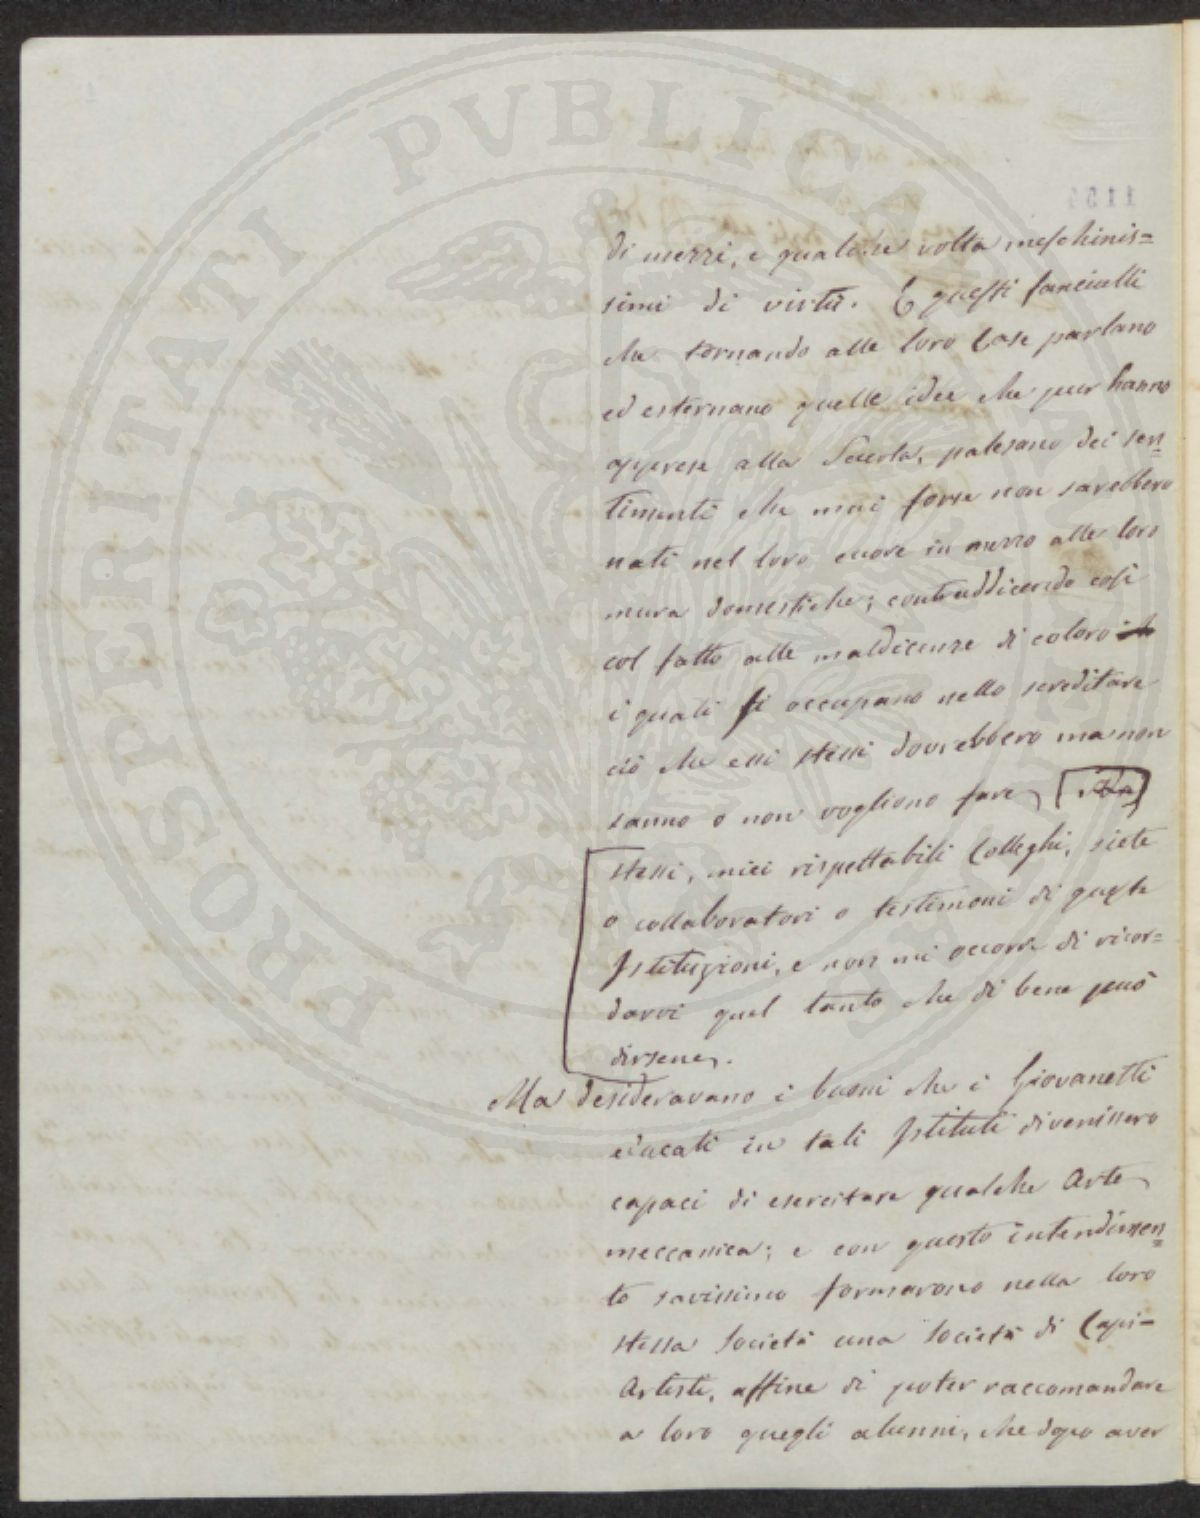 PROSPERITATI PUBLICAE
di mezzi, e qualche volta meschinis=
simi di virtù. E questi fanciulli
che tornando alle loro Case parlano
ed esternano quelle idee che pur hanno
apprese alla Scuola, palesano dei sen=
timenti che mai forse non sarebbero
nati nel loro cuore in mezzo alle loro
mura domestiche; contraddicendo così
col fatto alle maldicenze di coloro
i quali si occupano nello screditare
ciò che essi stessi dovrebbero ma non
sanno o non vogliono fare
stessi, miei rispettabili Colleghi, siete
o collaboratori o testimoni di queste
Istituzioni, e non mi occorre di ricor=
darvi quel tanto che di bene può
dirsene.
Ma desideravano i buoni che i Giovanetti
educati in tali Istituti divenissero
capaci di esercitare qualche Arte
meccanica; e con questo intendimen=
to savissimo formarono nella loro
stessa Società una Società di Capi=
Artisti, affine di poter raccomandare
a loro quegli alunni, che dopo aver